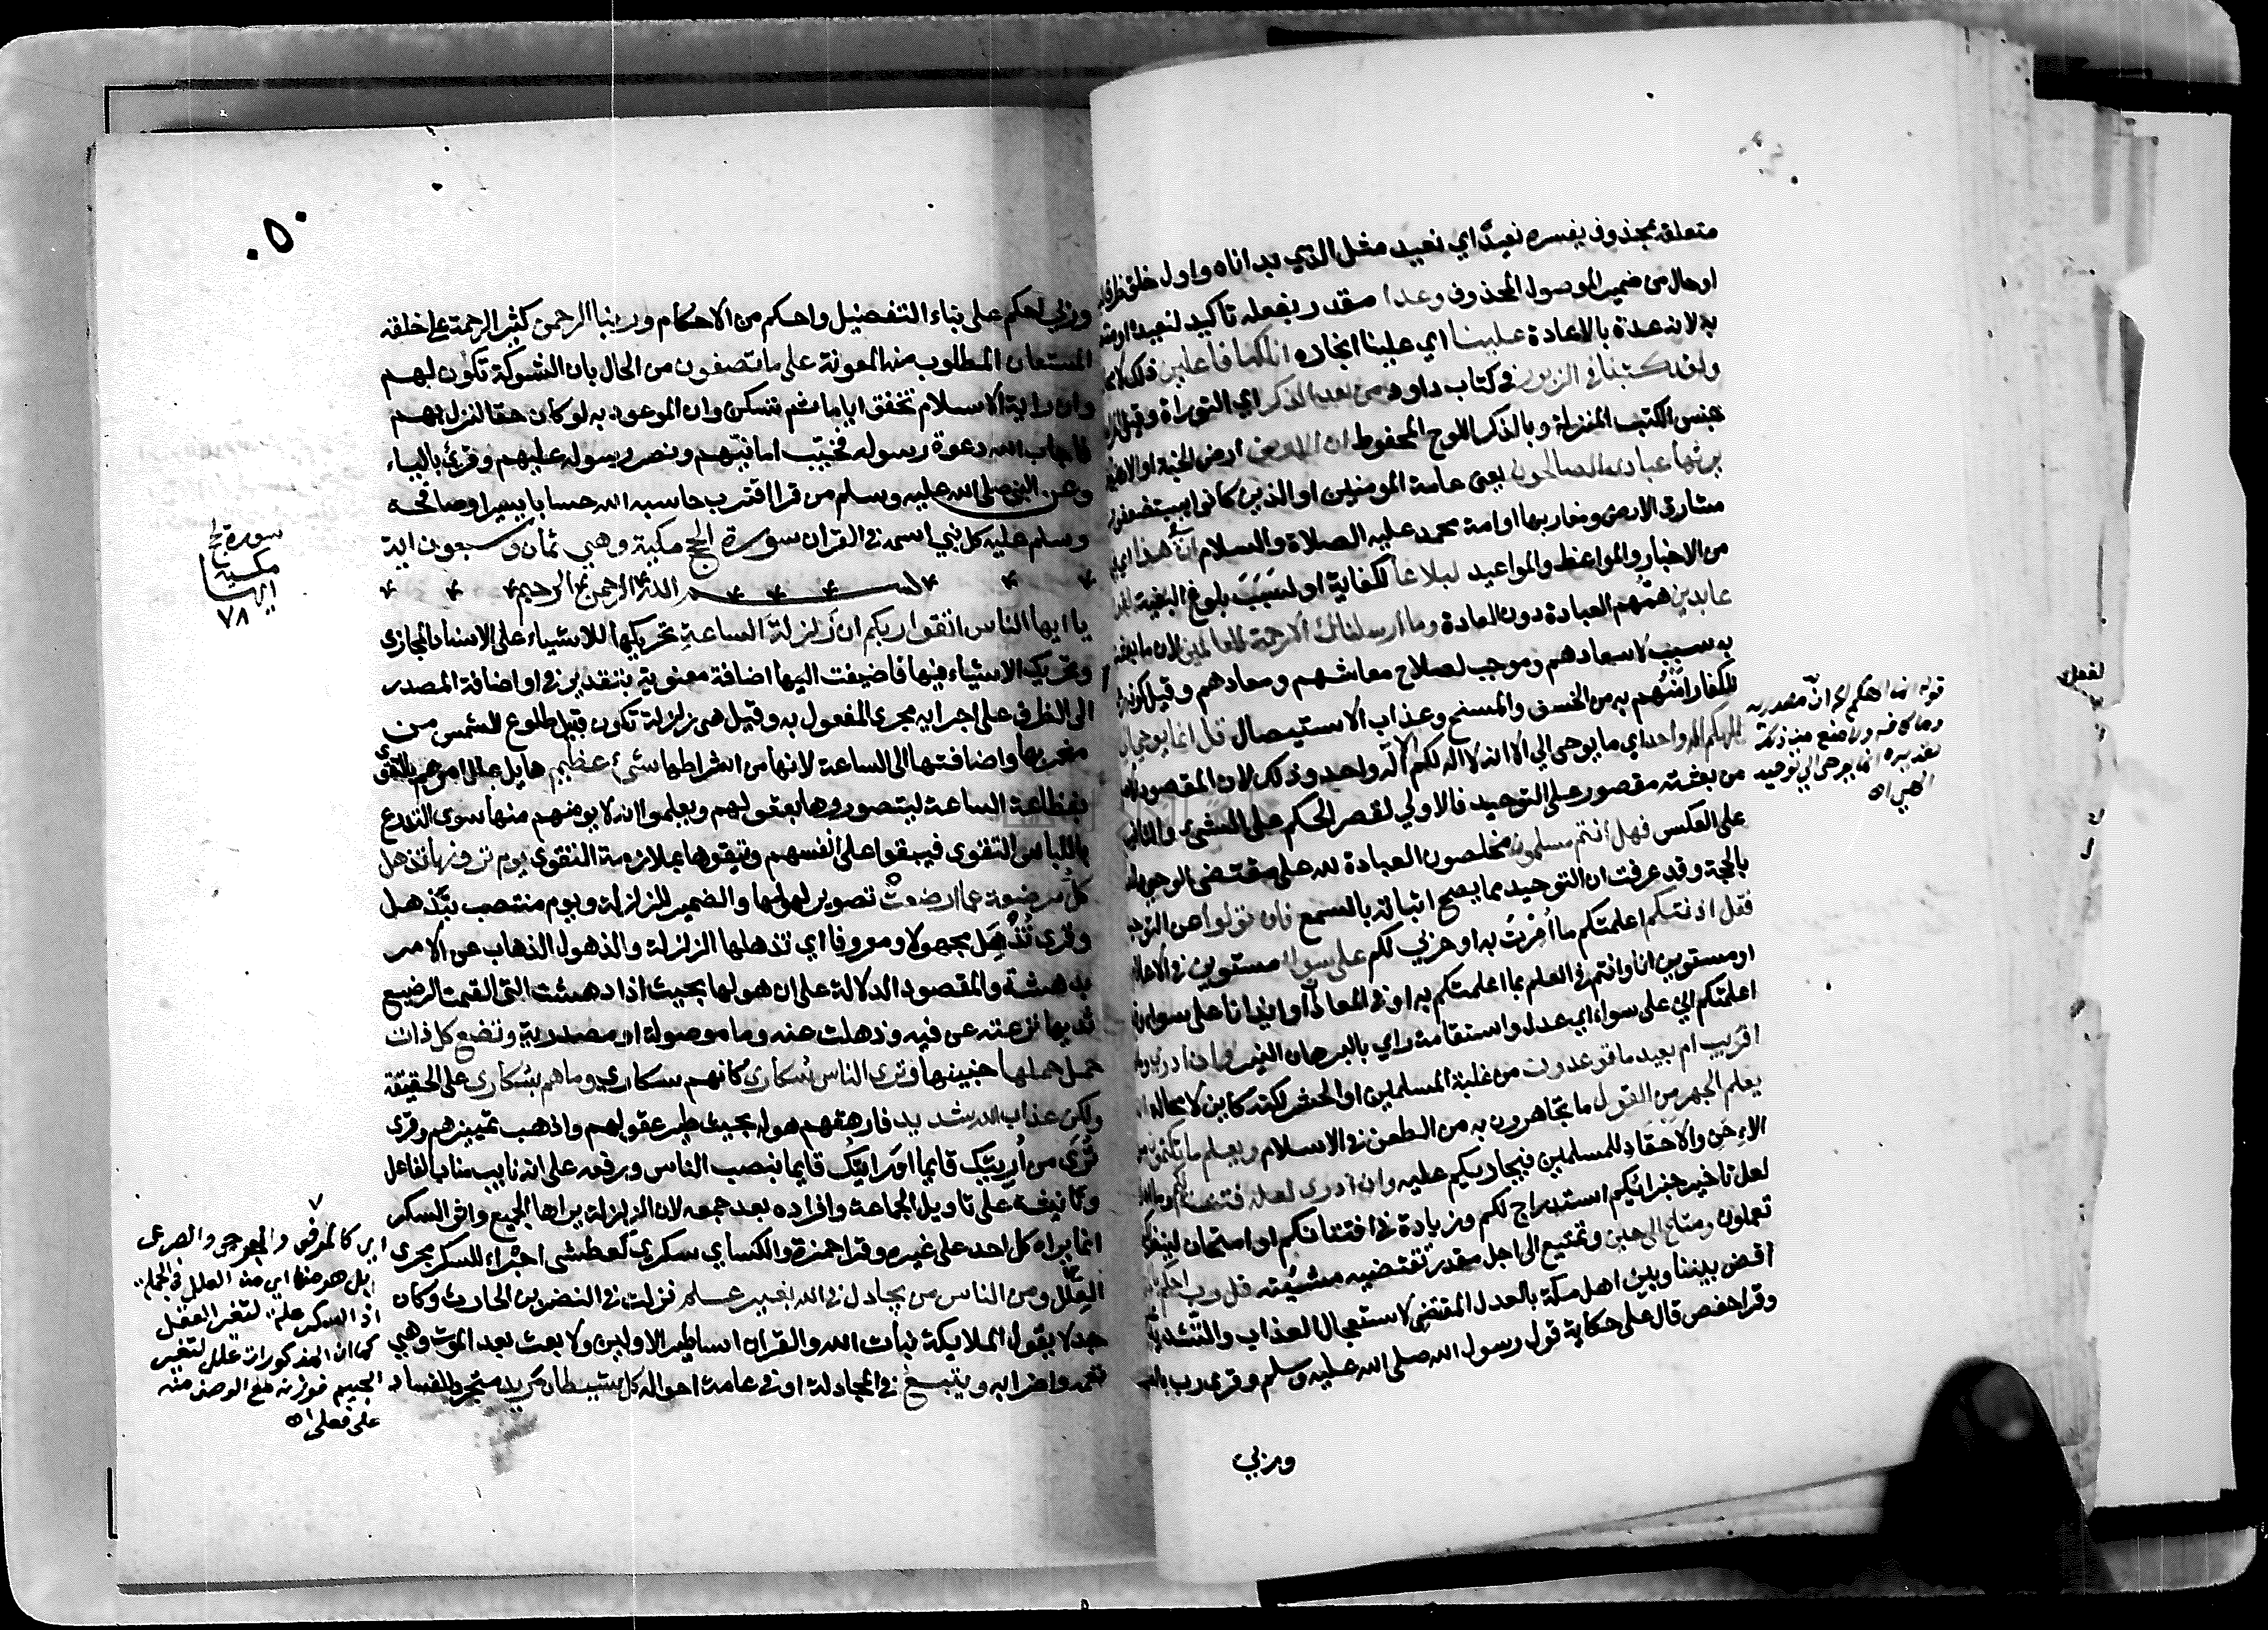 متعلق بمحذوف يفسره نعيده اي نعيد مثل الذي بداناه واول خلق ظرف
او حال من ضمير الموصول المحذوف وعدا مقدر بفعله تاكيد لنعيده او منتصب
به لانه عدة بالاعادة علينا اي علينا انجازه انا كنا فاعلين ذلك لا
ولقد كتبنا في الزبور في كتاب داود من بعد الذكر اي التوراة وقيل
جنس الكتب المنزلة وبالذكر اللوح المحفوظ ان الارض ارض الجنة او الارض
يرثها عبادي الصالحون يعني عامة المومنين او الذين كانوا يستضعفون
مشارق الارض ومغاربها او امة محمد عليه الصلاة والسلام ان في هذا اي
من الاخبار والمواعظ والمواعيد لبلاغا لكفاية او لسبب بلوغ البغية
عابدين همهم العبادة دون العادة وما ارسلناك الا رحمة للعالمين لان ما بعثت
به سبب لاسعادهم وموجب لصلاح معاشهم ومعادهم وقيل كونه
للكفار امنهم به من الخسف والمسخ وعذاب الاستيصال قل انما يوحى
الهكم اله واحد اي ما يوحى الي الا انه لا اله لكم الا اله واحد وذلك لان المقصود
من بعثته مقصور على التوحيد فالاولي لقصر الحكم على الشيء والثانية
على العكس فهل انتم مسلمون مخلصون العبادة لله على مقتضى الوحي
بالحجة وقد عرفت ان التوحيد مما يصح اثباته بالسمع فان تولوا عن التوحيد
فقل اذنتكم اعلمتكم ما امرت به او حربي لكم على سواء مستوين في الاعلام
او مستوين انا وانتم في العلم بما اعلمتكم به او في المعاداة او ايذانا على سواء
اعلمتكم اني على سواء اي عدل واستقامة راي بالبرهان النير وان ادري
اقريب ام بعيد ما توعدون من غلبة المسلمين او الحشر لكنه كاين لا محالة
يعلم الجهر من القول ما تجاهرون به من الطعن في الاسلام ويعلم ما تكتمون
الاحن والاحقاد للمسلمين فيجازيكم عليه وان ادري لعله فتنة لكم
لعل تاخير جزائكم استدراج لكم وزيادة في افتتانكم او امتحان لينظر
تعملون ومتاع الى حين وتمتيع الى اجل مقدر تقتضيه مشيئته قل رب احكم
اقض بيننا وبين اهل مكة بالعدل المقتضي لاستعجال العذاب والتشديد
وقرا حفص قال على حكاية قول رسول الله صلى الله عليه وسلم وقرئ رب
وربي
قوله انما الهكم
الهي اه
لفعل
٥٠
وربي احكم على بناء التفضيل واحكم من الاحكام وربنا الرحمن كثير الرحمة على خلقه
المستعان المطلوب منه المعونة على ما تصفون من الحال بان الشوكة تكون لهم
وان راية الاسلام تخفق اياما ثم تسكن وان الموعود به لو كان حقا لنزل بهم
فاجاب الله دعوة رسوله فخيب امانيهم ونصر رسوله عليهم وقرئ بالياء
وعن النبي صلى الله عليه وسلم من قرا اقترب حاسبه الله حسابا يسيرا وصافحه
وسلم عليه كل نبي اسمه في القران سورة الحج مكية وهي ثمان وسبعون اية
بسم الله الرحمن الرحيم
يا ايها الناس اتقوا ربكم ان زلزلة الساعة تحريكها للاشياء على الاسناد المجازي
وتحريك الاشياء فيها فاضيفت اليها اضافة معنوية بتقدير في او اضافة المصدر
الى الظرف على اجرايه مجرى المفعول به وقيل هي زلزلة تكون قبيل طلوع الشمس من
مغربها واضافتها الى الساعة لانها من اشراطها شيء عظيم هايل علل امرهم بالتقوى
بفظاعة الساعة ليتصوروها بعقولهم ويعلموا انه لا يومنهم منها سوى التدرع
بلباس التقوى فيبقوا على انفسهم ويتقوها بملازمة التقوى يوم ترونها تذهل
كل مرضعة عما ارضعت تصوير لهولها والضمير للزلزلة ويوم منتصب بتذهل
وقرئ تذهل مجهولا ومعروفا اي تذهلها الزلزلة والذهول الذهاب عن الامر
بدهشة والمقصود الدلالة على ان هولها بحيث اذا دهشت التي القمت الرضيع
ثديها نزعته عن فيه وذهلت عنه وما موصولة او مصدرية وتضع كل ذات
حمل حملها جنينها وترى الناس سكارى كانهم سكارى وما هم بسكارى على الحقيقة
ولكن عذاب الله شديد فارهقهم هوله بحيث طير عقولهم واذهب تمييزهم وقرئ
ترى من اريتك قايما او رايتك قايما بنصب الناس ورفعه على انه نايب مناب الفاعل
وتانيثه على تاويل الجماعة وافراده بعد جمعه لان الزلزلة يراها الجميع واثر السكر
انما يراه كل احد على غيره وقرا حمزة والكساي سكرى كعطشى اجراء للسكر مجرى
العلل ومن الناس من يجادل في الله بغير علم نزلت في النضر بن الحارث وكان
جدلا يقول الملايكة بنات الله والقران اساطير الاولين ولا بعث بعد الموت وهي
تعمه واضرابه ويتبع في المجادلة او في عامة احواله كل شيطان مريد متجرد للفساد
سورة الحج
مكية
ايها
٧٨
اي كالمرضى والجرحى والصرعى
بل هو منها اي من العلل في الجملة
اذ السكر علة لتغير العقل
كما ان المذكورات علل لتغير
الجسم
على فعلى اه